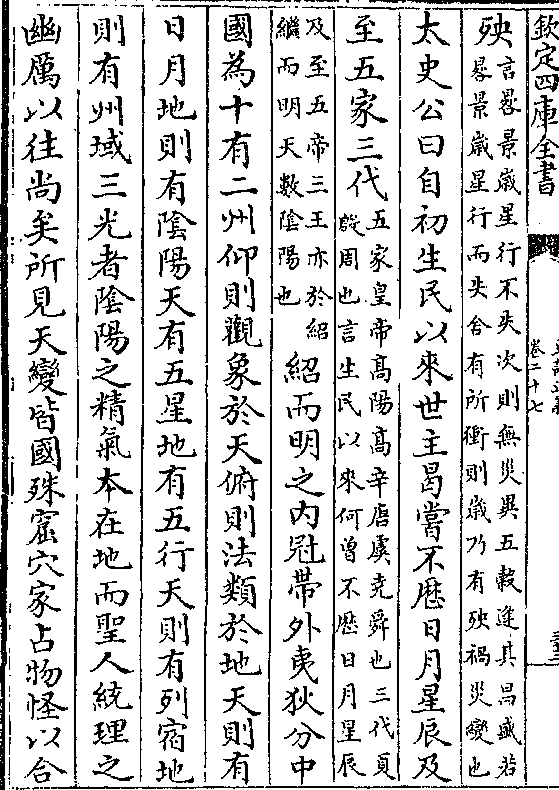 欽定四庫全書
卷二十七
殃言晷景歲星行不失次則無災異五穀逢其昌盛若
晷景歲星行而失舍有所衝則歲乃有殃禍災變也
太史公曰自初生民以來世主曷嘗不厯日月星辰及
至五家三代五家皇帝髙陽髙辛唐虞堯舜也三代夏
殷周也言生民以來何曾不厯日月星辰
及至五帝三王亦於紹
繼而明天數陰陽也紹而明之内冠帶外夷狄分中
國為十有二州仰則觀象於天俯則法類於地天則有
日月地則有陰陽天有五星地有五行天則有列宿地
則有州域三光者陰陽之精氣本在地而聖人統理之
幽厲以往尚矣所見天變皆國殊窟穴家占物怪以合